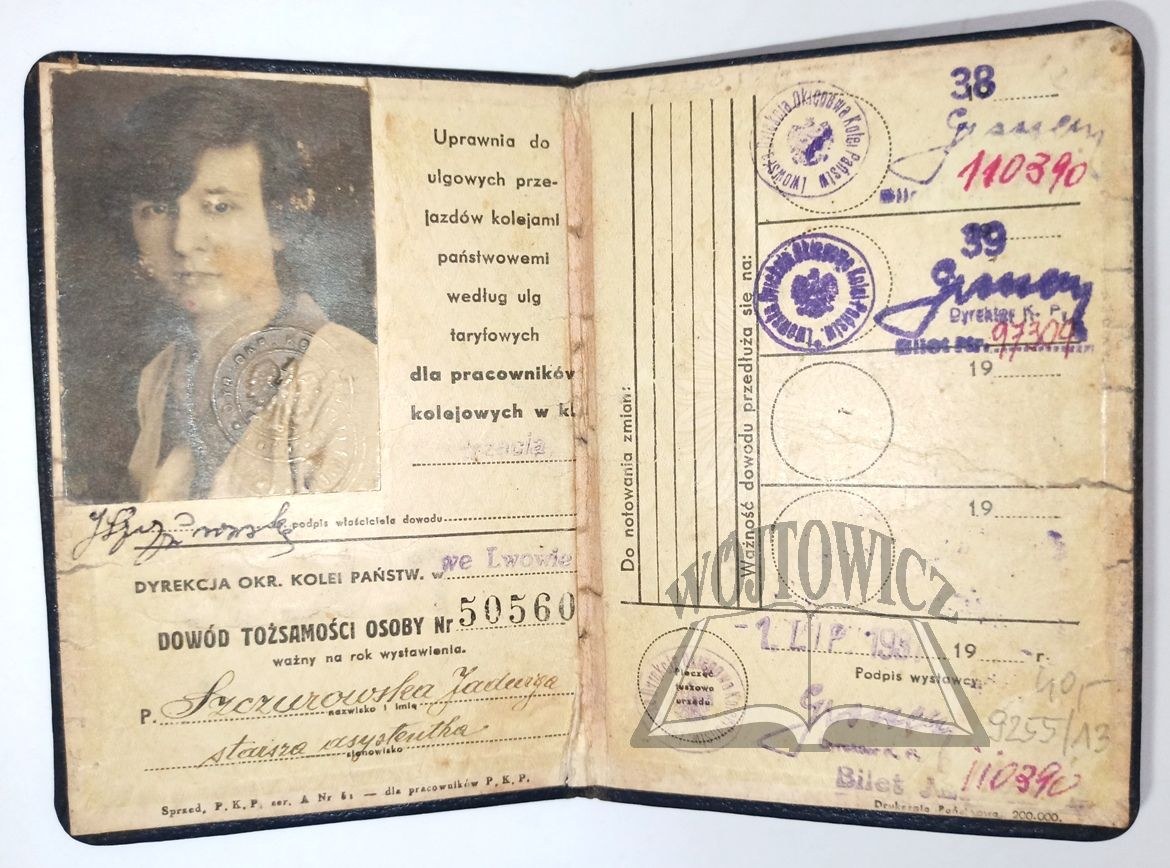 Uprawnia do
ulgowych prze-
jazdów kolejami
państwowemi
według ulg
taryfowych
dla pracowników
kolejowych w kl.
podpis właściciela dowodu
DYREKCJA OKR. KOLEI PAŃSTW. we Lwowie
DOWÓD TOŻSAMOŚCI OSOBY Nr 50560
ważny na rok wystawienia.
P. Szczurowska Jadwiga
nazwisko i imię
starsza asystentka
stanowisko
Sprzed. P.K.P. ser. A Nr — dla pracowników P.K.P.
Do notowania zmian:
Ważność dowodu przedłuża się na:
38
Lwowska Dyrekcja Okręgowa Kolei Państw
110390
39
Lwowska Dyrekcja Okręgowa Kolei Państw.
Dyrektor K. P.
Bilet Nr. 97304
19
19
WÓJTOWICZ
-1. LIP. 193 19 r.
Pieczęć
tuszowa
urzędu
Podpis wystawcy
40,-
9255/13
Bilet 110390
Drukarnia Państwowa. 200.000.